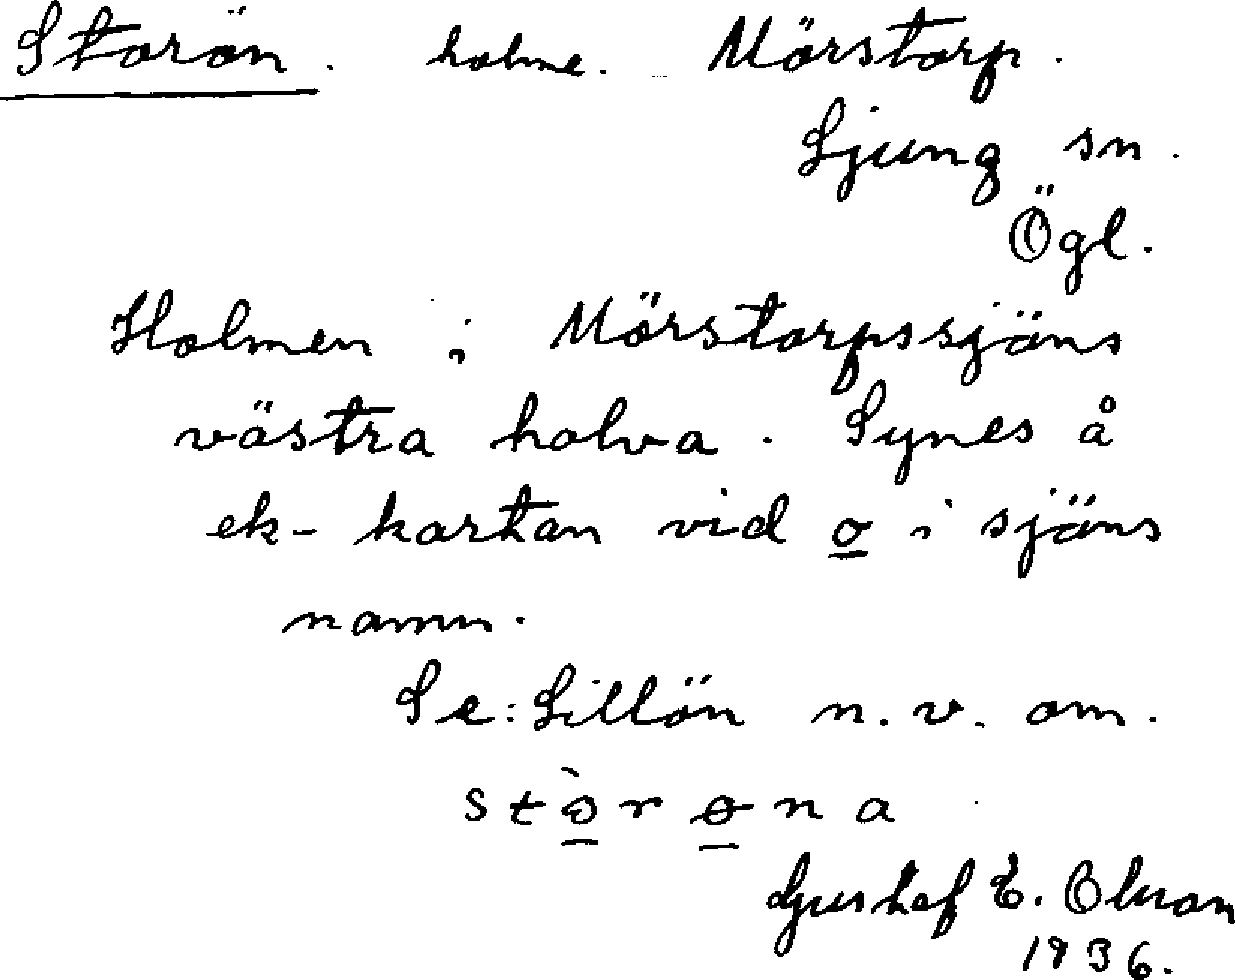 Storön. holme. Mörstorp.
Ljung sn.
Ögl.
Holmen i Mörstorpssjöns
västra halva. Synes å
ek-kartan vid o i sjöns
namn.
Se: Lillön n.v. om.
stòrɵna
Gustaf E. Olsson
1936.